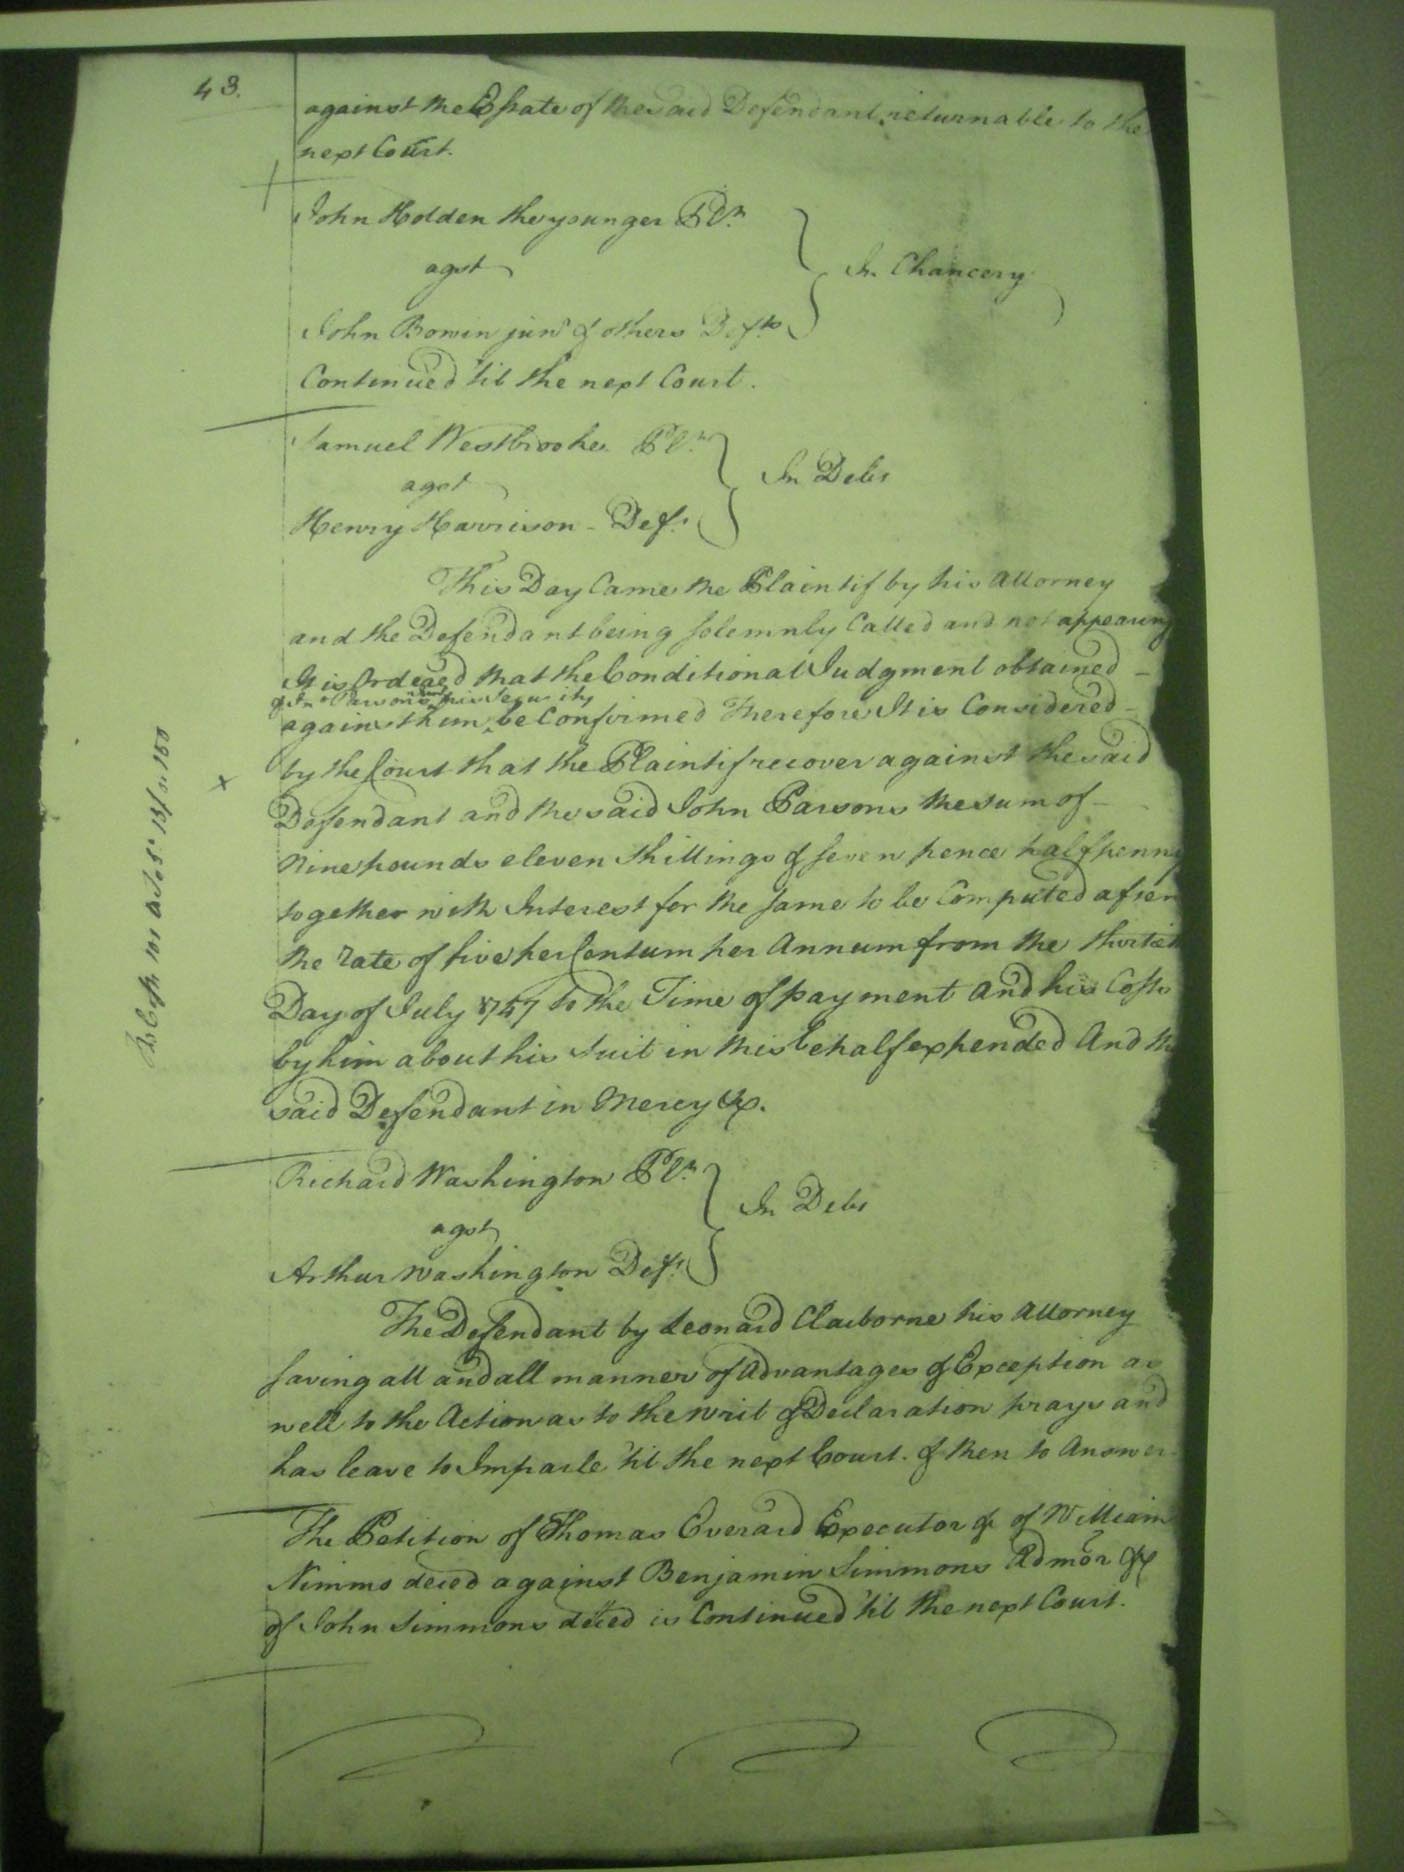 43.
against the Estate of the said Defendant returnable to the
next Court.
John Holden the younger Plr.
agst
In Chancery
John Bowin junr & others Defts
Continued 'til the next Court.
Samuel Westbrooke Plr.
agst
In Debt
Henry Harrison - Deft.
This Day Came the Plaintif by his Attorney
and the Defendant being solemnly Called and not appearing
It is Ordered that the Conditional Judgment obtained -
& Jno Parsons his Security
against him be Confirmed Therefore It is Considered -
by the Court that the Plaintif recover against the said
Defendant and the said John Parsons the sum of -
Nine pounds eleven shillings & seven pence halfpenny
together with Interest for the same to be Computed after
the rate of five per Centum per Annum from the thirtieth
Day of July 1747 to the Time of payment And his Costs
by him about his suit in this behalf expended And the
said Defendant in Mercy &c.
Richard Washington Plr.
agst
In Debt
Arthur Washington Deft.
The Defendant by Leonard Claiborne his Attorney
saving all and all manner of Advantages & Exception as
well to the Action as to the writ & Declaration prays and
has leave to Imparle 'til the next Court. & then to Answer
The Petition of Thomas Everard Executor &c of William
Nimmo deced against Benjamin Simmons Admor &c
of John Simmons deced is Continued 'til the next Court.